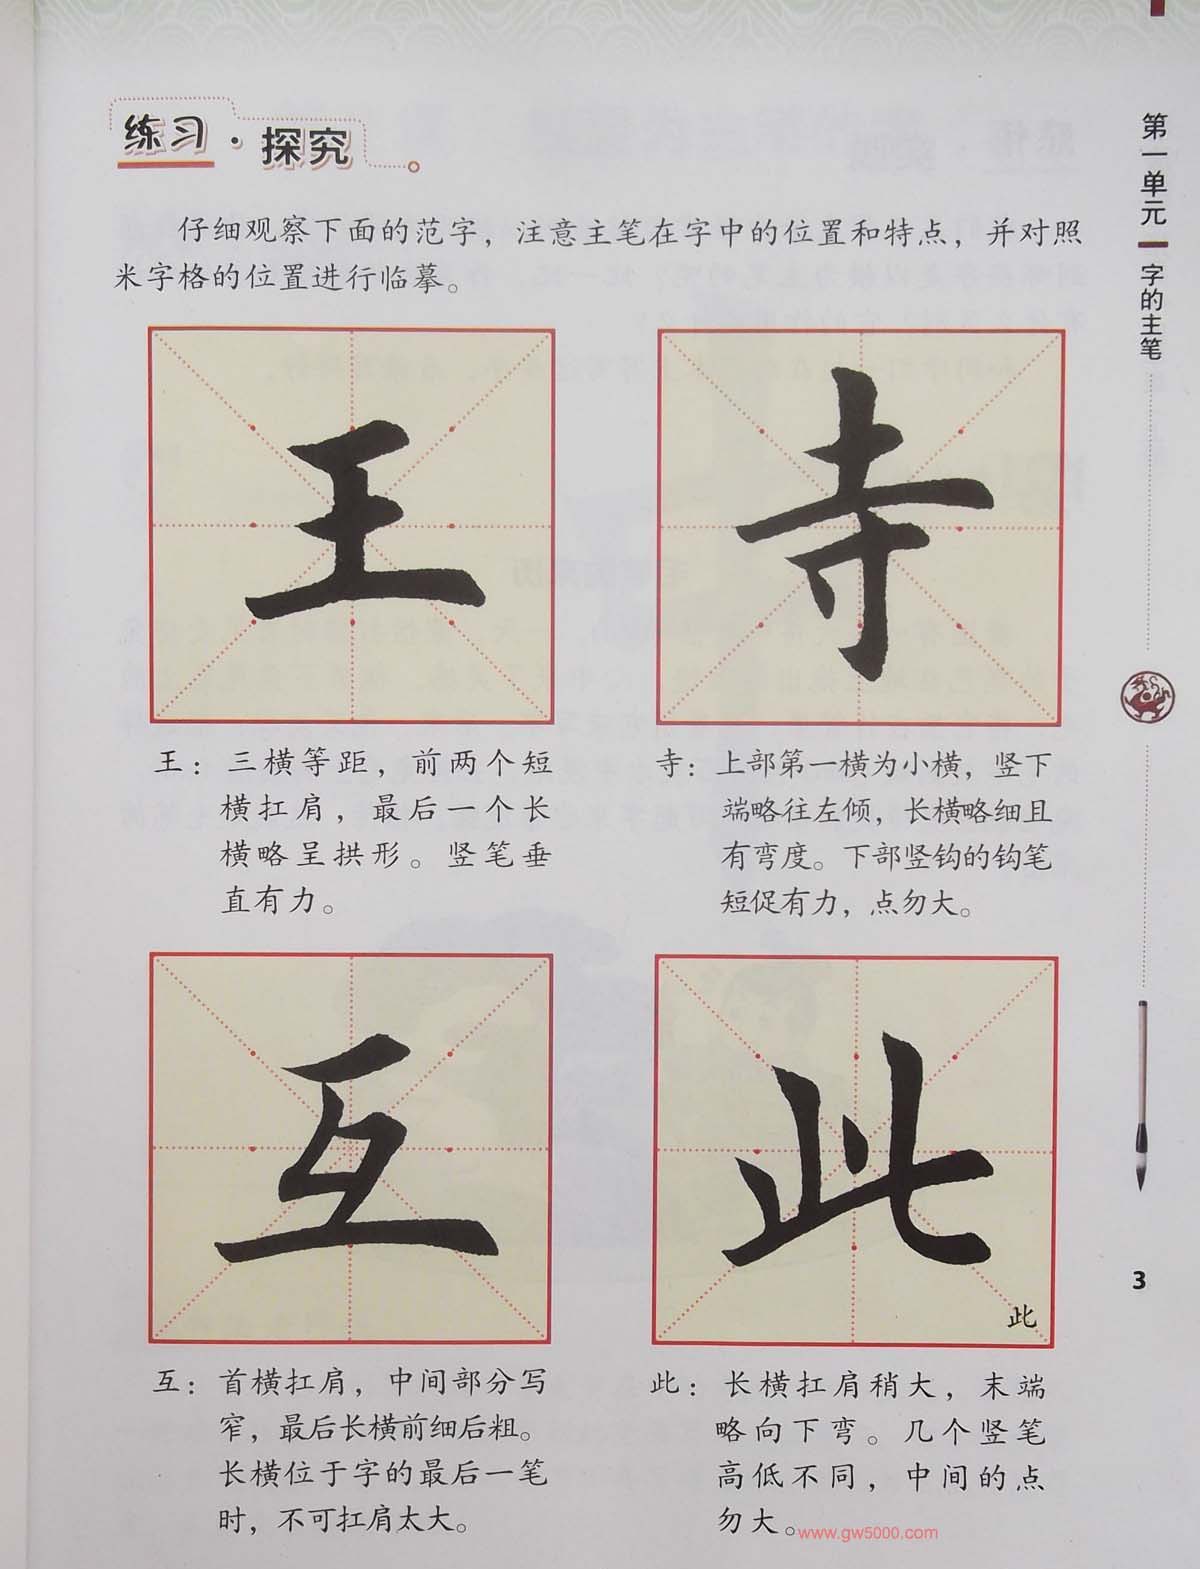 练习·探究
仔细观察下面的范字，注意主笔在字中的位置和特点，并对照
米字格的位置进行临摹。
王
寺
王：三横等距，前两个短
横扛肩，最后一个长
横略呈拱形。竖笔垂
直有力。
寺：上部第一横为小横，竖下
端略往左倾，长横略细且
有弯度。下部竖钩的钩笔
短促有力，点勿大。
互
此
此
互：首横扛肩，中间部分写
窄，最后长横前细后粗。
长横位于字的最后一笔
时，不可扛肩太大。
此：长横扛肩稍大，末端
略向下弯。几个竖笔
高低不同，中间的点
勿大。
www.gw5000.com
第一单元
字的主笔
3